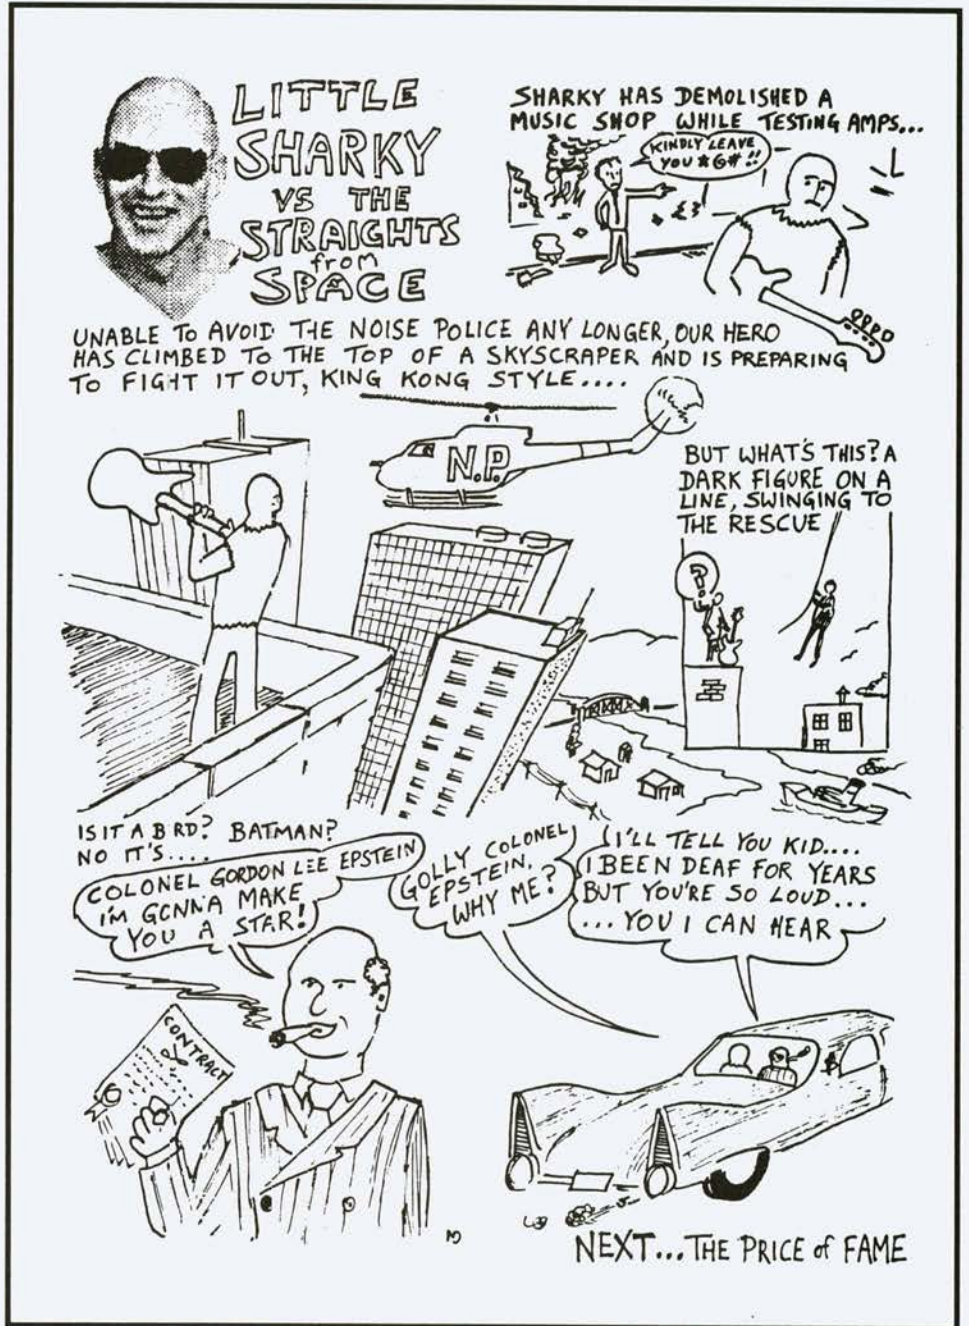 LITTLE
SHARKY
VS THE
STRAIGHTS
from
SPACE
SHARKY HAS DEMOLISHED A
MUSIC SHOP WHILE TESTING AMPS...
KINDLY LEAVE
YOU *G#!!
UNABLE TO AVOID THE NOISE POLICE ANY LONGER, OUR HERO
HAS CLIMBED TO THE TOP OF A SKYSCRAPER AND IS PREPARING
TO FIGHT IT OUT, KING KONG STYLE....
N.P.
BUT WHAT'S THIS? A
DARK FIGURE ON A
LINE, SWINGING TO
THE RESCUE
?
IS IT A B RD? BATMAN?
NO IT'S....
COLONEL GORDON LEE EPSTEIN
I'M GONNA MAKE
YOU A STAR!
GOLLY COLONEL
EPSTEIN,
WHY ME?
I'LL TELL YOU KID....
I BEEN DEAF FOR YEARS
BUT YOU'RE SO LOUD...
...YOU I CAN HEAR
CONTRACT
$
NEXT...THE PRICE of FAME